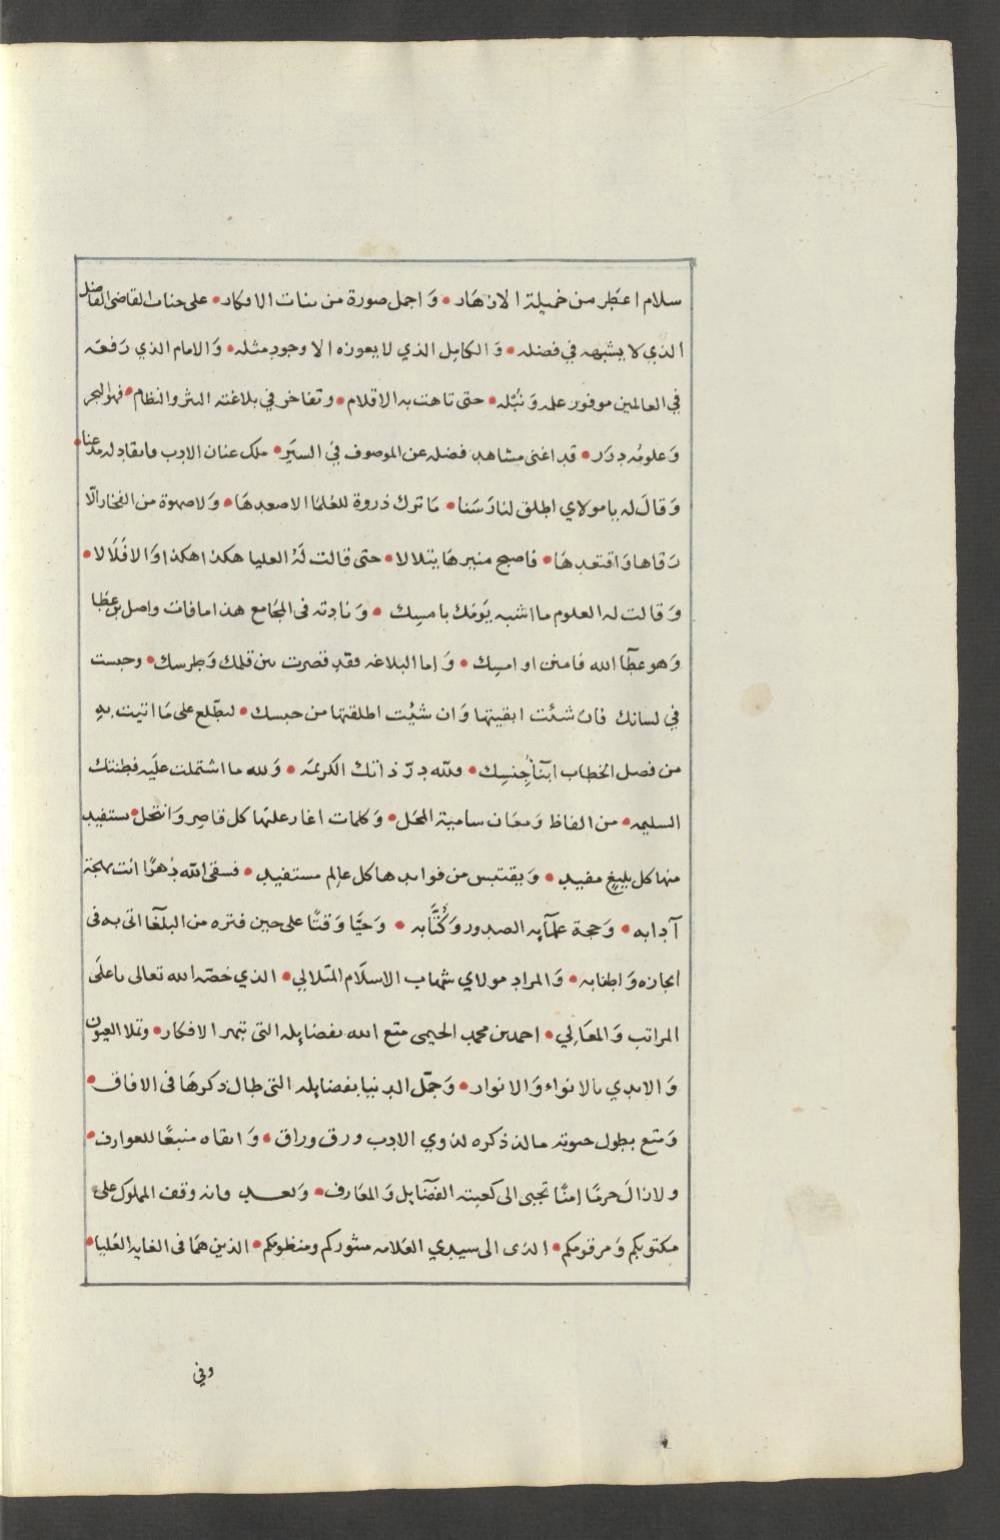 سلام اعطر من خميلة الازهار • وَاجمل صورة من بنات الافكار • على جناب القاضى الفاضل
الذي لا يشبهه في فضله • وَالكامل الذي لا يعوزه الا وجود مثله • وَالامام الذي رَفعَه
في العالمين موفور علمه وَنُبْله • حتى تاهت به الاقلام • وتفاخر في بلاغته النثر والنظام • فهو البحر
وَعلومُه دِرَر • قد اغنى مشاهد فضله عن الموصوف فيْ السيَر • ملك عنان الادب فانقاد له مذعنا •
وَقالَ له يا مولاي اطلق لنا رَسَنا • مَا ترك ذروة للعُلمَا الا صعدهَا • وَلا صهوة من الفخار الّا
رَقاها وَاقتعدهَا • فاصبح منبرهَا يتلالا • حتى قالت لَهُ العليا هكذا هكذا وَالا فَلَا لا •
وَقالت له العلوم ما اشبه يَومَك بامسِك • وَنادته فى المجَامع هذا ما فات واصل بن عطَا
وَهو عطَآ الله فامنن او امسِك • وَاما البلاغه فقد قصرت بين قلمك وَطِرسك • وحبست
في لسانك فان شئت ابقيتها وَان شئِت اطلقتها من حبسك • ليطّلع على مَا اتيت بِهِ
من فصل الخطاب ابنآ جِنسِك • فللّه دِرّ ذاتك الكريمَه • وَلله ما اشتملت علَيه فطنتك
السليمه • من الفاظ وَمعَان سامية المحَل • وَكلمات اغار علَيهَا كل قاصِر وَانتحل • يستفيد
منها كل بليغٍ مفيد • وَيقتبس من فوايدها كل عالِم مستفيد • فسقى الله دَهرًا انت بهجة
آدابه • وَحجة علمآيه الصدور وَكُتَّابه • وَحيَّا وَقتًا على حين فتره من البلَغَا اتى به فى
ايجازه وَاطنابه • وَالمراد مولاي شهاب الاسلَام المتلالي • الذي خصّه الله تعالى باعلَى
المراتب وَالمعَالِي • احمد بن محمد الحيمى متع الله بفضايله التي تبهر الافكار • وتملا العيون
وَالايدي بالانواء وَالانوار • وَجمّل الدنيا بفضايله التي طال ذكرهَا فى الافاق •
وَمتع بطول حيوته ما لذ ذكره لذوي الادب ورق وراق • وَابقاه منبعًا للعوارف •
ولازالَ حرمًا اٰمنًا تجبى الى كعبته الفضَايل وَالمعَارف • وَبعـــد فانه وقف المملوك على
مكتوبكم وَمرقومكم • الذى الى سيدي العَلامه منثوركم ومنظومكم • الذين همَا فى الغايه العُليا •
وفي